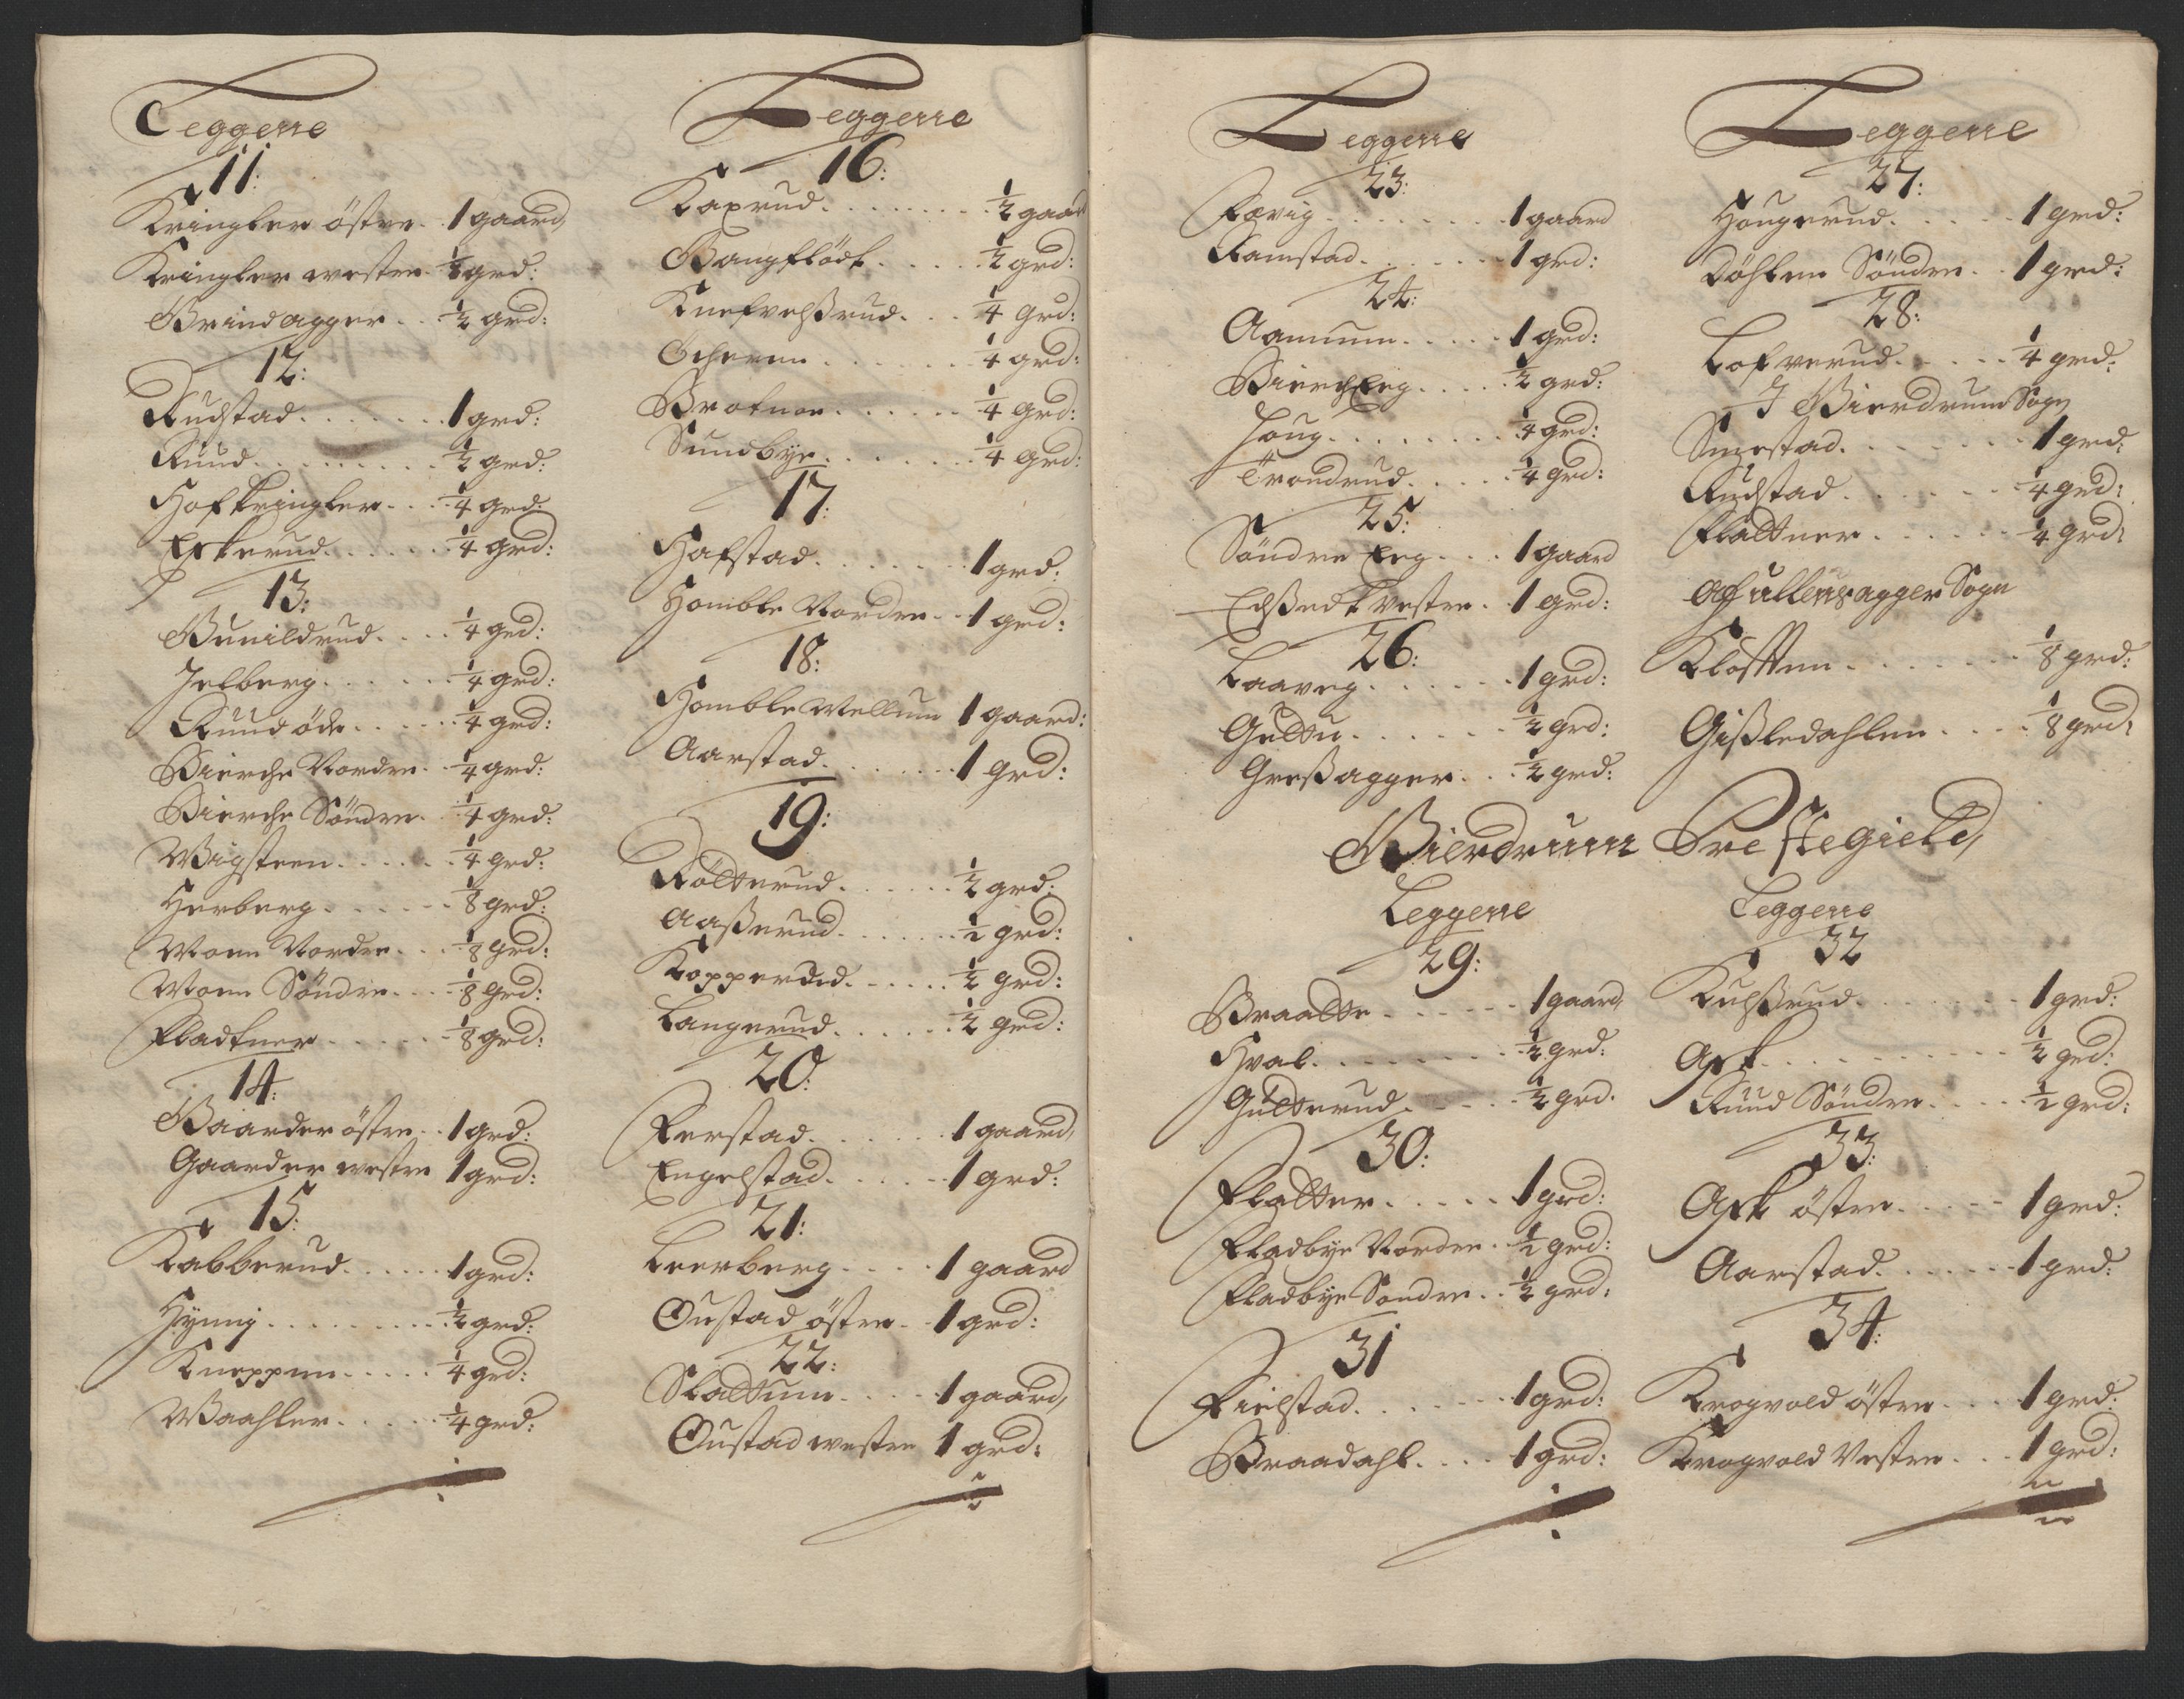 Leggerne
11:
Kringler östre. . 1 gaard,
Kringler westre. ½ grd:
Brindagger. . ½ grd:
12:
Rudstad. . . . . . . 1 grd:
Ruud. . . . . . . . . ½ grd:
Hofkringler. . . ¼ grd:
Eskerud. . . . . . ¼ grd:
13:
Gunildrud. . . . ¼ grd:
Jelberg. . . . . . ¼ grd:
Ruud öde. . . . . ¼ grd:
Bierche Nordre. . ¼ grd:
Bierche Söndre. ¼ grd:
Wigsteen. . . . . ¼ grd:
Herberg. . . . . . ⅛ grd:
Moen Nordre. . . ⅛ grd:
Moen Söndre. . . ⅛ grd:
Fladtner. . . . . . ⅛ grd:
14:
Gaarder östre. . 1 grd:
Gaarder westre 1 grd:
15:
Kabberud. . . . . 1 grd:
Hynnj. . . . . . . . . ½ grd:
Kneppen. . . . . ¼ grd:
Waahler. . . . . ¼ grd:
Leggerne
16:
Kaxrud. . . . . . . . ½ gaar
Bangflödt. . . . . ½ grd:
Knefvelßrud. . . ¼ grd:
Scheren. . . . . . . ¼ grd:
Brotner. . . . . . . ¼ grd:
Sundbye. . . . . . . ¼ grd:
17:
Hafstad. . . . . . . 1 grd:
Homble Nordre. . 1 grd:
18:
Homble Mellum 1 gaard:
Aarstad. . . . . . . 1 grd:
19:
Rötterud. . . . . . ½ grd:
Aaßerud. . . . . . . ½ grd:
Kopperud. . . . . . ½ grd:
Langerud. . . . . . ½ grd:
20:
Ferstad. . . . . . . 1 gaard,
Engelstad. . . . . . 1 grd:
21:
Leerberg. . . . 1 gaard
Oustad östre. . 1 grd:
22:
Slattum. . . . . 1 gaard,
Oustad westre 1 grd:
Leggerne
23:
Forvig. . . . . . . . 1 gaard
Ramstad. . . . . . . 1 grd:
24:
Aamum. . . . . 1 grd:
Bierch Eeg. . . . ½ grd:
Houg. . . . . . . . ¼ grd:
Trondrud. . . . . ¼ grd:
25:
Söndre Eeg. . . 1 gaard
Edßedt Vestre. 1 grd:
26:
Laaveg. . . . . . 1 grd:
Guttu. . . . . . . ½ grd:
Greßagger. . . ½ grd:
Leggerne
27:
Hougerud. . . . . 1 grd:
Döhlen Söndre. . 1 grd:
28:
Lofverud. . . . . ¼ grd:
I Gierdrum Sogn
Smestad. . . . . . . 1 grd:
Rudstad. . . . . . . ¼ grd:
Flattner. . . . . . ¼ grd:
Af Ullensagger Sogn
Klöfften. . . . . . . ⅛ grd:
Gißledahlen. . . . ⅛ grd:
Gierdrum Prestegield,
Leggerne
29:
Braatte. . . . . . 1 gaard,
Hval. . . . . . . . ½ grd:
Gulterud. . . . . ½ grd.
30:
Flatter. . . . . 1 grd:
Fladbye Nordre. ½ grd:
Fladbye Sondre. . ½ grd:
31
Fielstad. . . . . . . 1 grd:
Braadahl. . . . 1 grd:
Leggerne
32
Kulßrud. . . . . . . 1 grd:
Ask. . . . . . . . . . ½ grd:
Ruud Söndre. . . . . ½ grd:
33:
Ask östre. . . . . 1 grd:
Aarstad. . . . . . . 1 grd:
34:
Krogvold östre. . . 1 grd:
Krogvold Vestre. . . 1 grd: